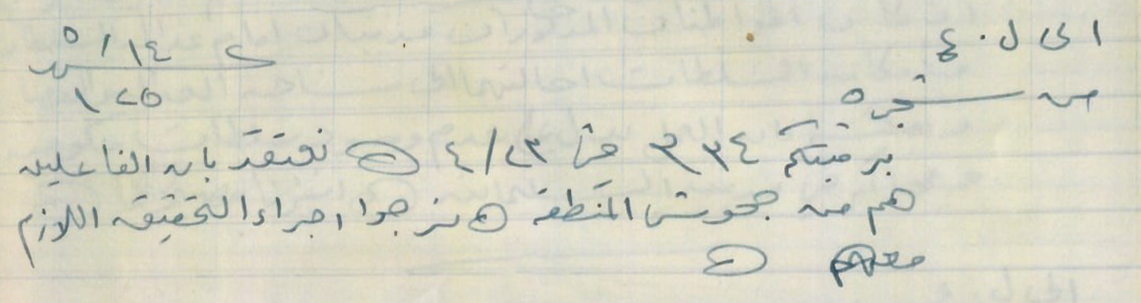 الى ل . ٤
٥ / ١٤
من
١٢٥
برقيتكم ٣٣٤ في ٢٣ / ٤ نعتقد بان الفاعلين
هم من جحوش المنطقة نرجوا اجراء التحقيق اللازم
معهم